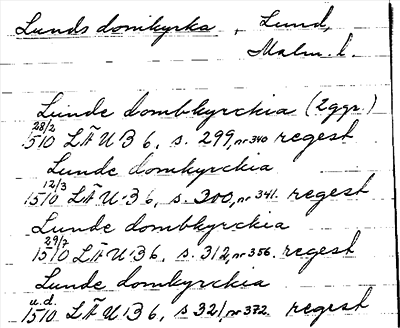 Lunds domkyrka, Lund,
Malm. l.
Lunde dombkyrckia (2 ggr.)
28/2 1510 LÄU B 6, s. 299, nr 340 regest
Lunde domkyrckia
12/3 1510 LÄU B 6, s. 300, nr 341. regest
Lunde dombkyrckia
29/7 1510 LÄU B 6, s. 312, nr 356. regest
Lunde domkyrckia
u.d. 1510 LÄU B 6, s 321, nr 372. regest